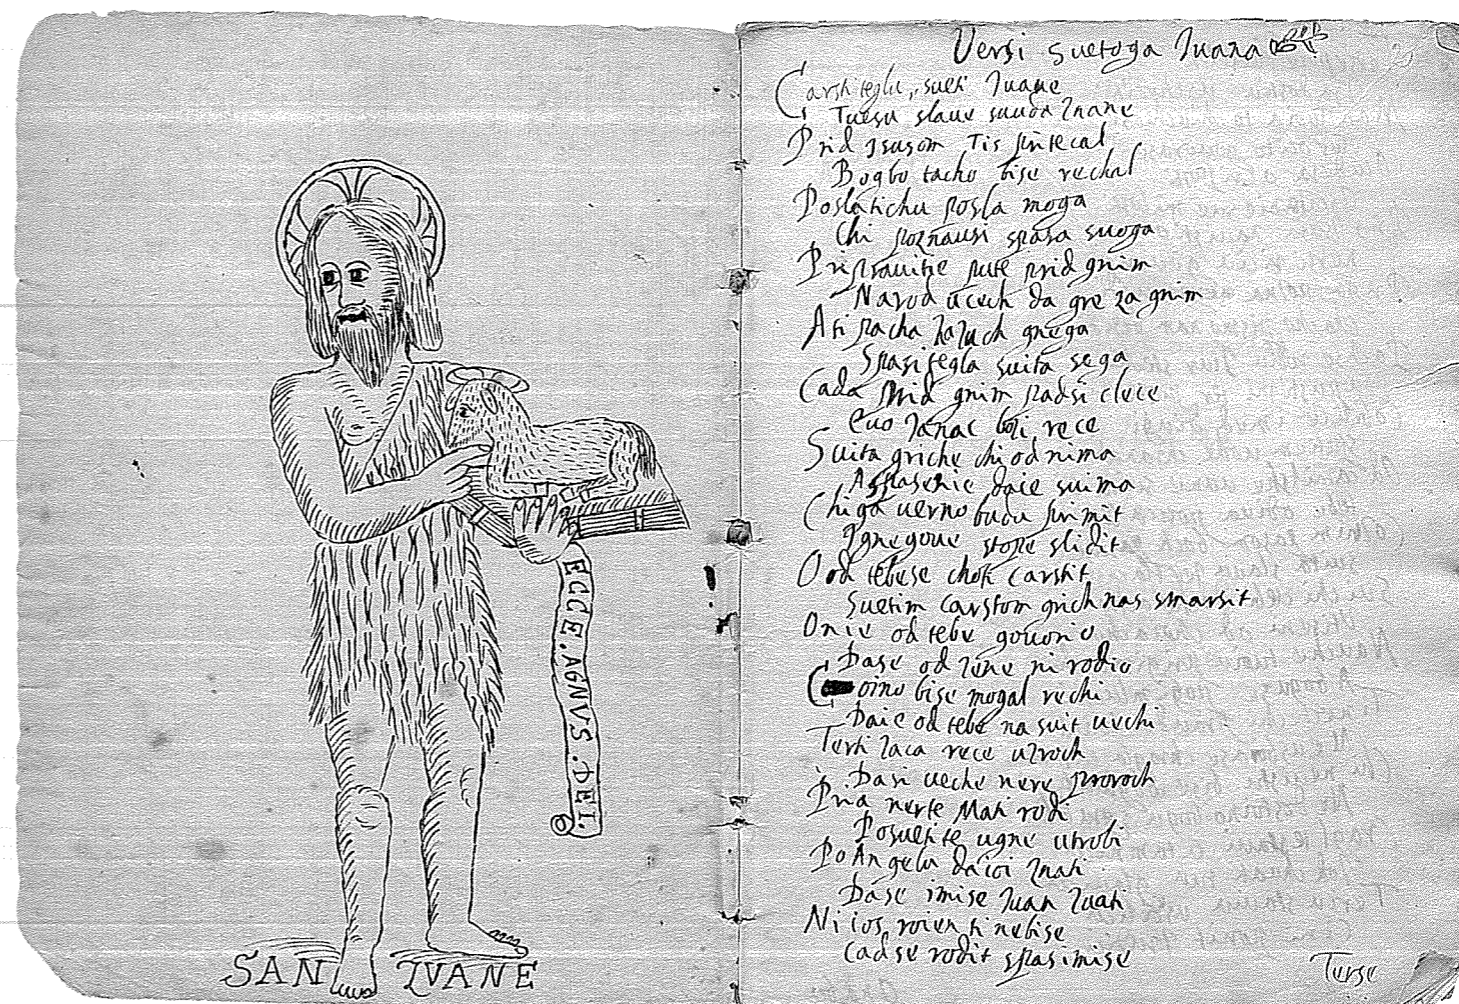 ECCE . AGNVS . DEI .
SAN IVANE
Versi suetoga Iuana
Carstiteglu, sueti Iuane
Tuega slaue suuda Znane
Prid Isusom Tis pritecal
Bogbo tacho bise rechal
Poslatichu posla moga
Chi poznausi spasa suoga
Pripravitie pute prid gnim
Narod ucech da gre za gnim
Ati pacha gnega
Spasitegla suita sega
Cada prid gnim padsi clece
Euo Ianac boži rece
Suita griche chi od nima
A spasenie daie suima
Chi ga uerno budu primit
I gnegoue stope slidit
O od tebese choti carstit
Suetim Carstom grich nas smarsit
Onie od tebe gouorio
Dase od žene ni rodio
Coino bise mogal rechi
Daie od tebe na suit uechi
Terti Zaca rece uzroch
Dasi ueche nere proroch
Pria nerte Mati rodi
Posuetite ugne utrobi
Po Angelu daioi Znati
Dase imise Iuan Zuati
Ni ios roien ti nebise
Cadse rodit spasimise
Terse